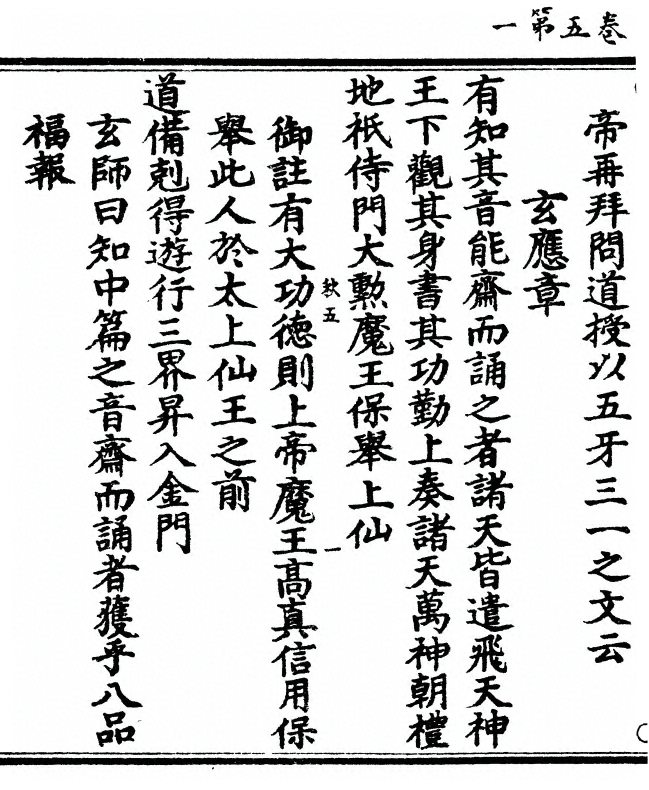 卷五第一
帝再拜問道授以五牙三一之文云
玄應章
有知其音能齋而誦之者諸天皆遣飛天神
王下觀其身書其功勤上奏諸天萬神朝禮
地祇侍門大勲魔王保舉上仙
秋五
一
御註有大功德則上帝魔王高真信用保
舉此人於太上仙王之前
道備剋得遊行三界昇入金門
玄師曰知中篇之音齋而誦者獲乎八品
福報